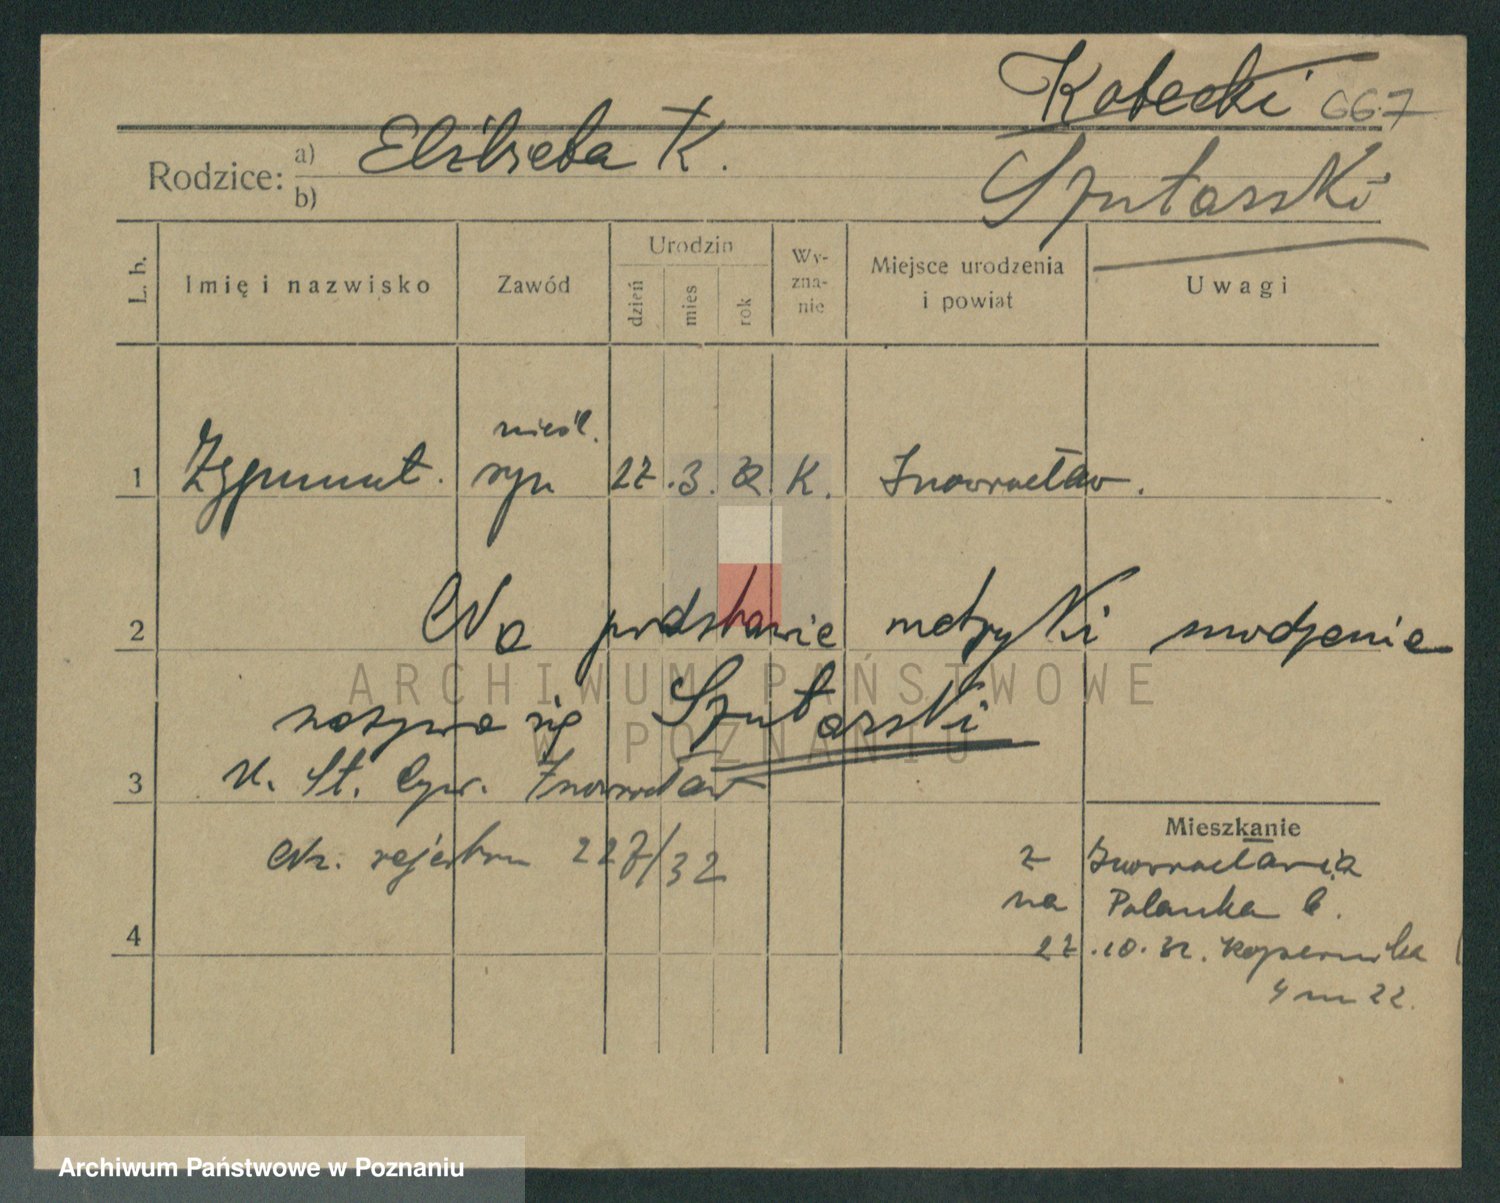 Kotecki 667
Szutarski
Rodzice: a) Elżbieta K.
b)
L. b. Imię i nazwisko Zawód Urodzin dzień mies rok Wy-zna-nie Miejsce urodzenia i powiat Uwagi
nieśl.
1 Zygmunt. syn 27. 3. 32. K. Inowrocław.
2 Na podstawie metryki urodzenia
nazywa się Szutarski
3 U. St. Cyw. Inowrocław
Nr. rejestru 227/32
Mieszkanie
z Inowrocławia
na Polanka 6.
4 27.10.32. Kopernika
4 m 22.
ARCHIWUM PAŃSTWOWE
W POZNANIU
Archiwum Państwowe w Poznaniu